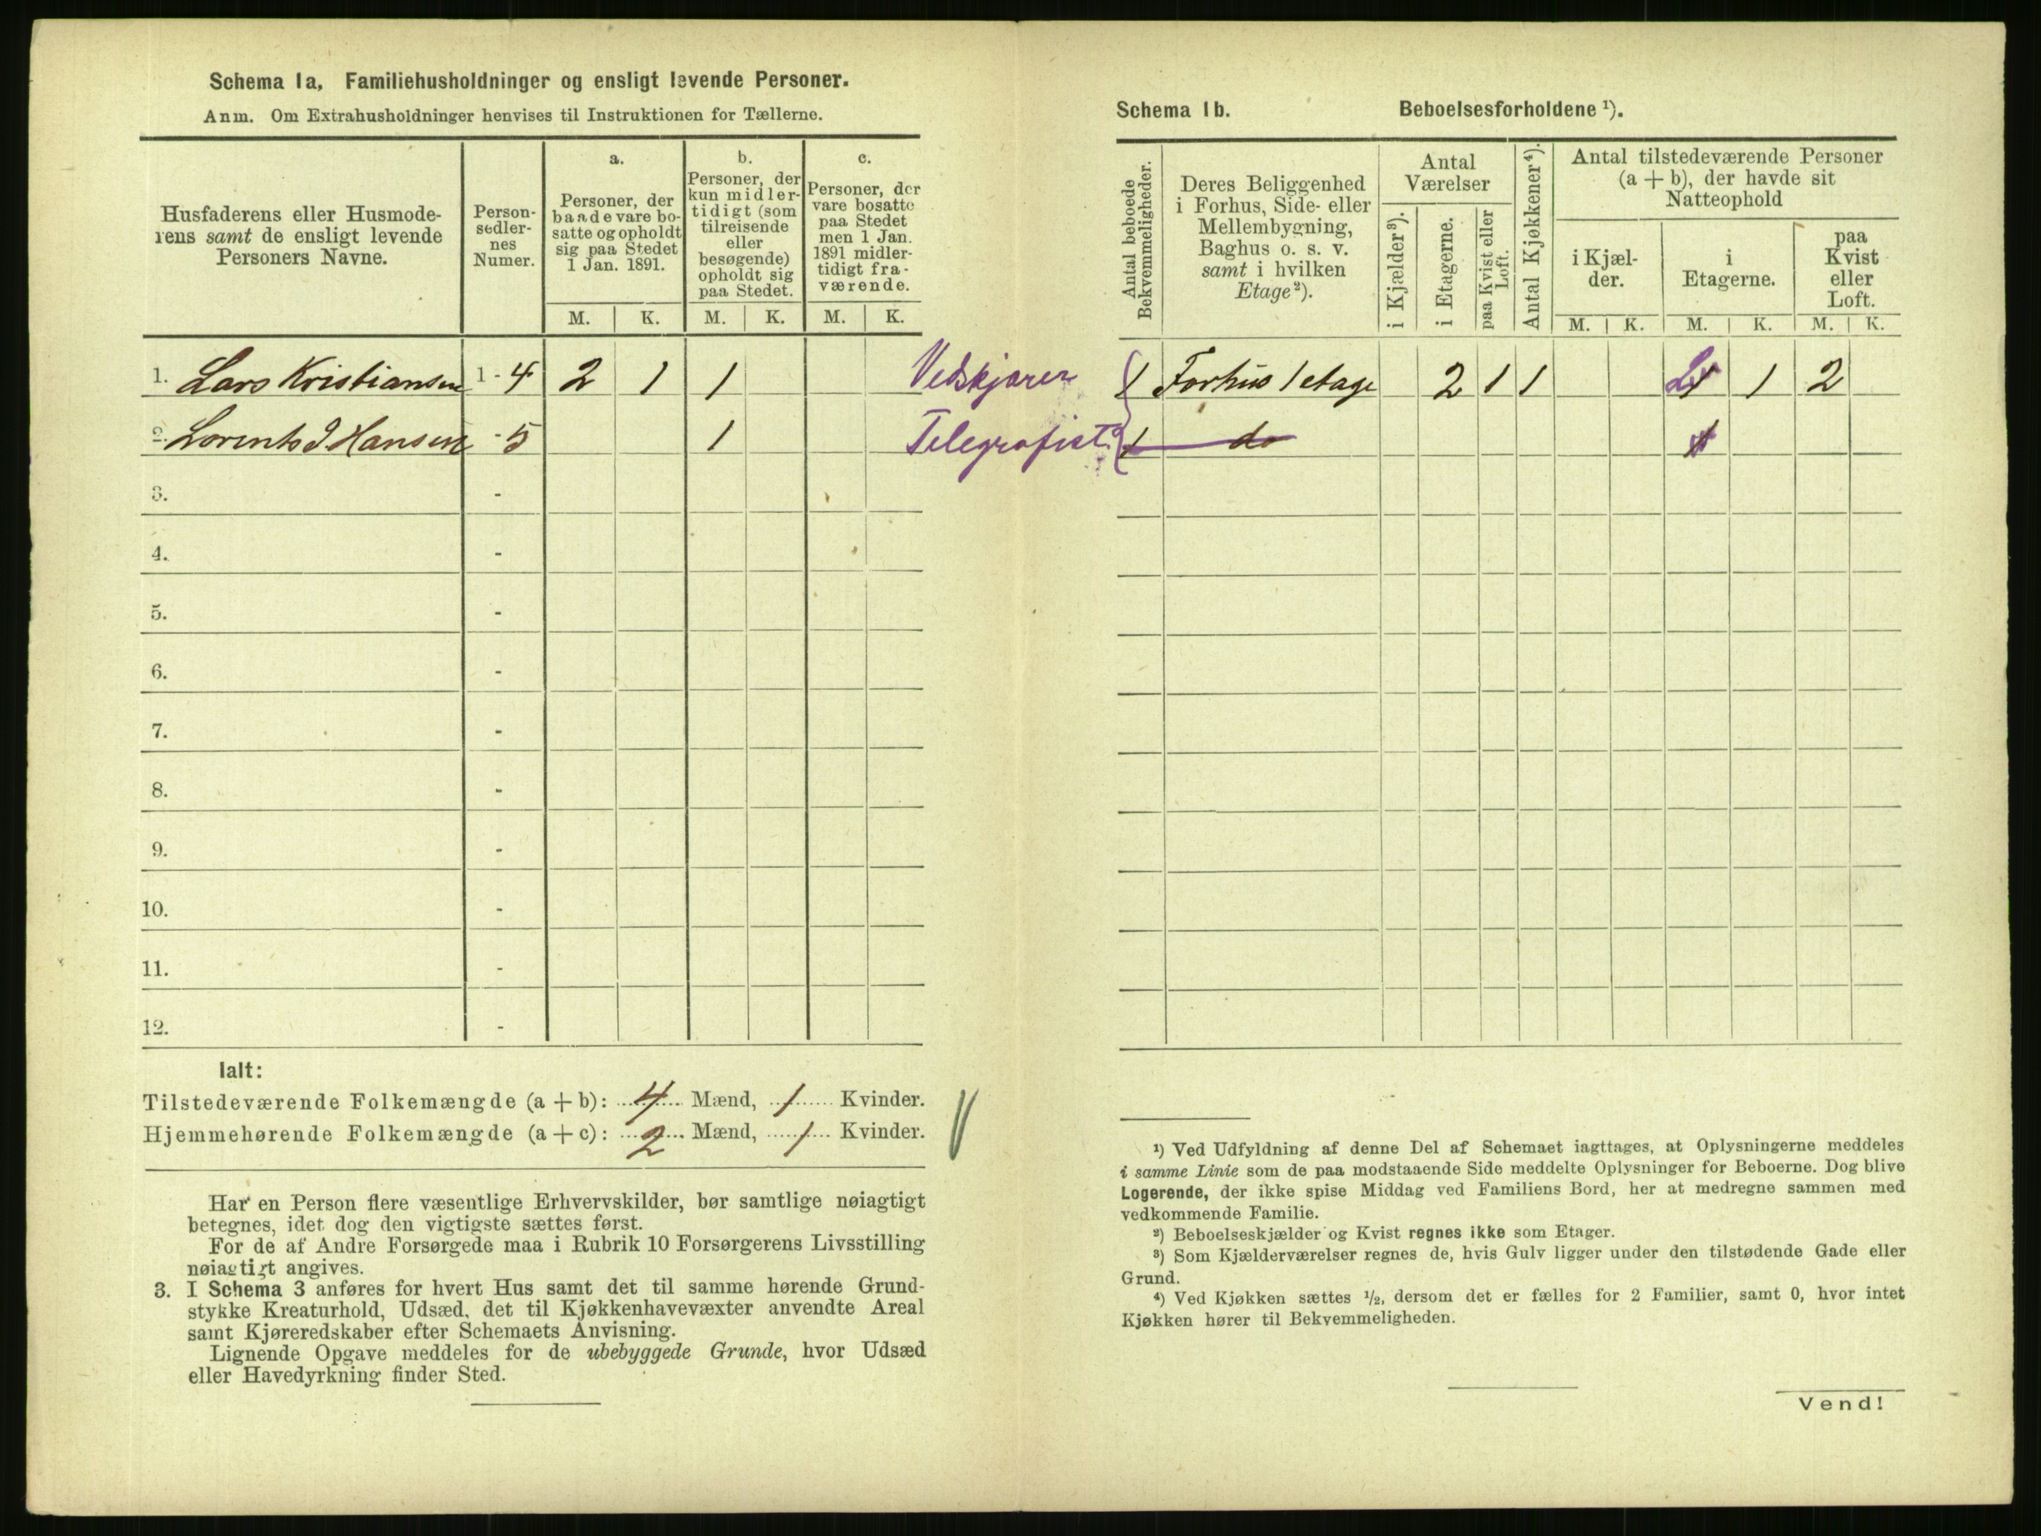 Schema 1a, Familiehusholdninger og ensligt levende Personer.
Anm. Om Extrahusholdninger henvises til Instruktionen for Tællerne.
Husfaderens eller Husmode-
rens samt de ensligt levende
Personers Navne.
Person-
sedler-
nes
Numer.
a.
Personer, der
baade vare bo-
satte og opholdt
sig paa Stedet
1 Jan. 1891.
b.
Personer, der
kun midler-
tidigt (som
tilreisende
eller
besøgende)
opholdt sig
paa Stedet.
c.
Personer, der
vare bosatte
paa Stedet
men 1 Jan.
1891 midler-
tidigt fra-
værende.
M. K. M. K. M. K.
1. Lars Kristiansen 1 - 4 2 1 1 Vedskjører
2. Lorents J Hansen - 5 1 Telegrafist
3. -
4. -
5. -
6. -
7. -
8. -
9. -
10. -
11. -
12. -
Ialt:
Tilstedeværende Folkemængde (a + b): 4 Mænd, 1 Kvinder.
Hjemmehørende Folkemængde (a + c): 2 Mænd, 1 Kvinder.
Har en Person flere væsentlige Erhvervskilder, bør samtlige nøiagtigt
betegnes, idet dog den vigtigste sættes først.
For de af Andre Forsørgede maa i Rubrik 10 Forsørgerens Livsstilling
nøiagtigt angives.
3. I Schema 3 anføres for hvert Hus samt det til samme hørende Grund-
stykke Kreaturhold, Udsæd, det til Kjøkkenhavevæxter anvendte Areal
samt Kjøreredskaber efter Schemaets Anvisning.
Lignende Opgave meddeles for de ubebyggede Grunde, hvor Udsæd
eller Havedyrkning finder Sted.
Schema 1b. Beboelsesforholdene ¹).
Antal beboede
Bekvemmeligheder.
Deres Beliggenhed
i Forhus, Side- eller
Mellembygning,
Baghus o. s. v.
samt i hvilken
Etage²).
Antal
Værelser
i Kjælder³).
i Etagerne.
paa Kvist eller
Loft.
Antal Kjøkkener⁴).
Antal tilstedeværende Personer
(a + b), der havde sit
Natteophold
i Kjæl-
der.
i
Etagerne.
paa
Kvist
eller
Loft.
M. K. M. K. M. K.
1 Forhus 1 etage 2 1 1 2 1 2
1 do 1
¹) Ved Udfyldning af denne Del af Schemaet iagttages, at Oplysningerne meddeles
i samme Linie som de paa modstaaende Side meddelte Oplysninger for Beboerne. Dog blive
Logerende, der ikke spise Middag ved Familiens Bord, her at medregne sammen med
vedkommende Familie.
²) Beboelseskjælder og Kvist regnes ikke som Etager.
³) Som Kjælderværelser regnes de, hvis Gulv ligger under den tilstødende Gade eller
Grund.
⁴) Ved Kjøkken sættes ½, dersom det er fælles for 2 Familier, samt 0, hvor intet
Kjøkken hører til Bekvemmeligheden.
Vend!